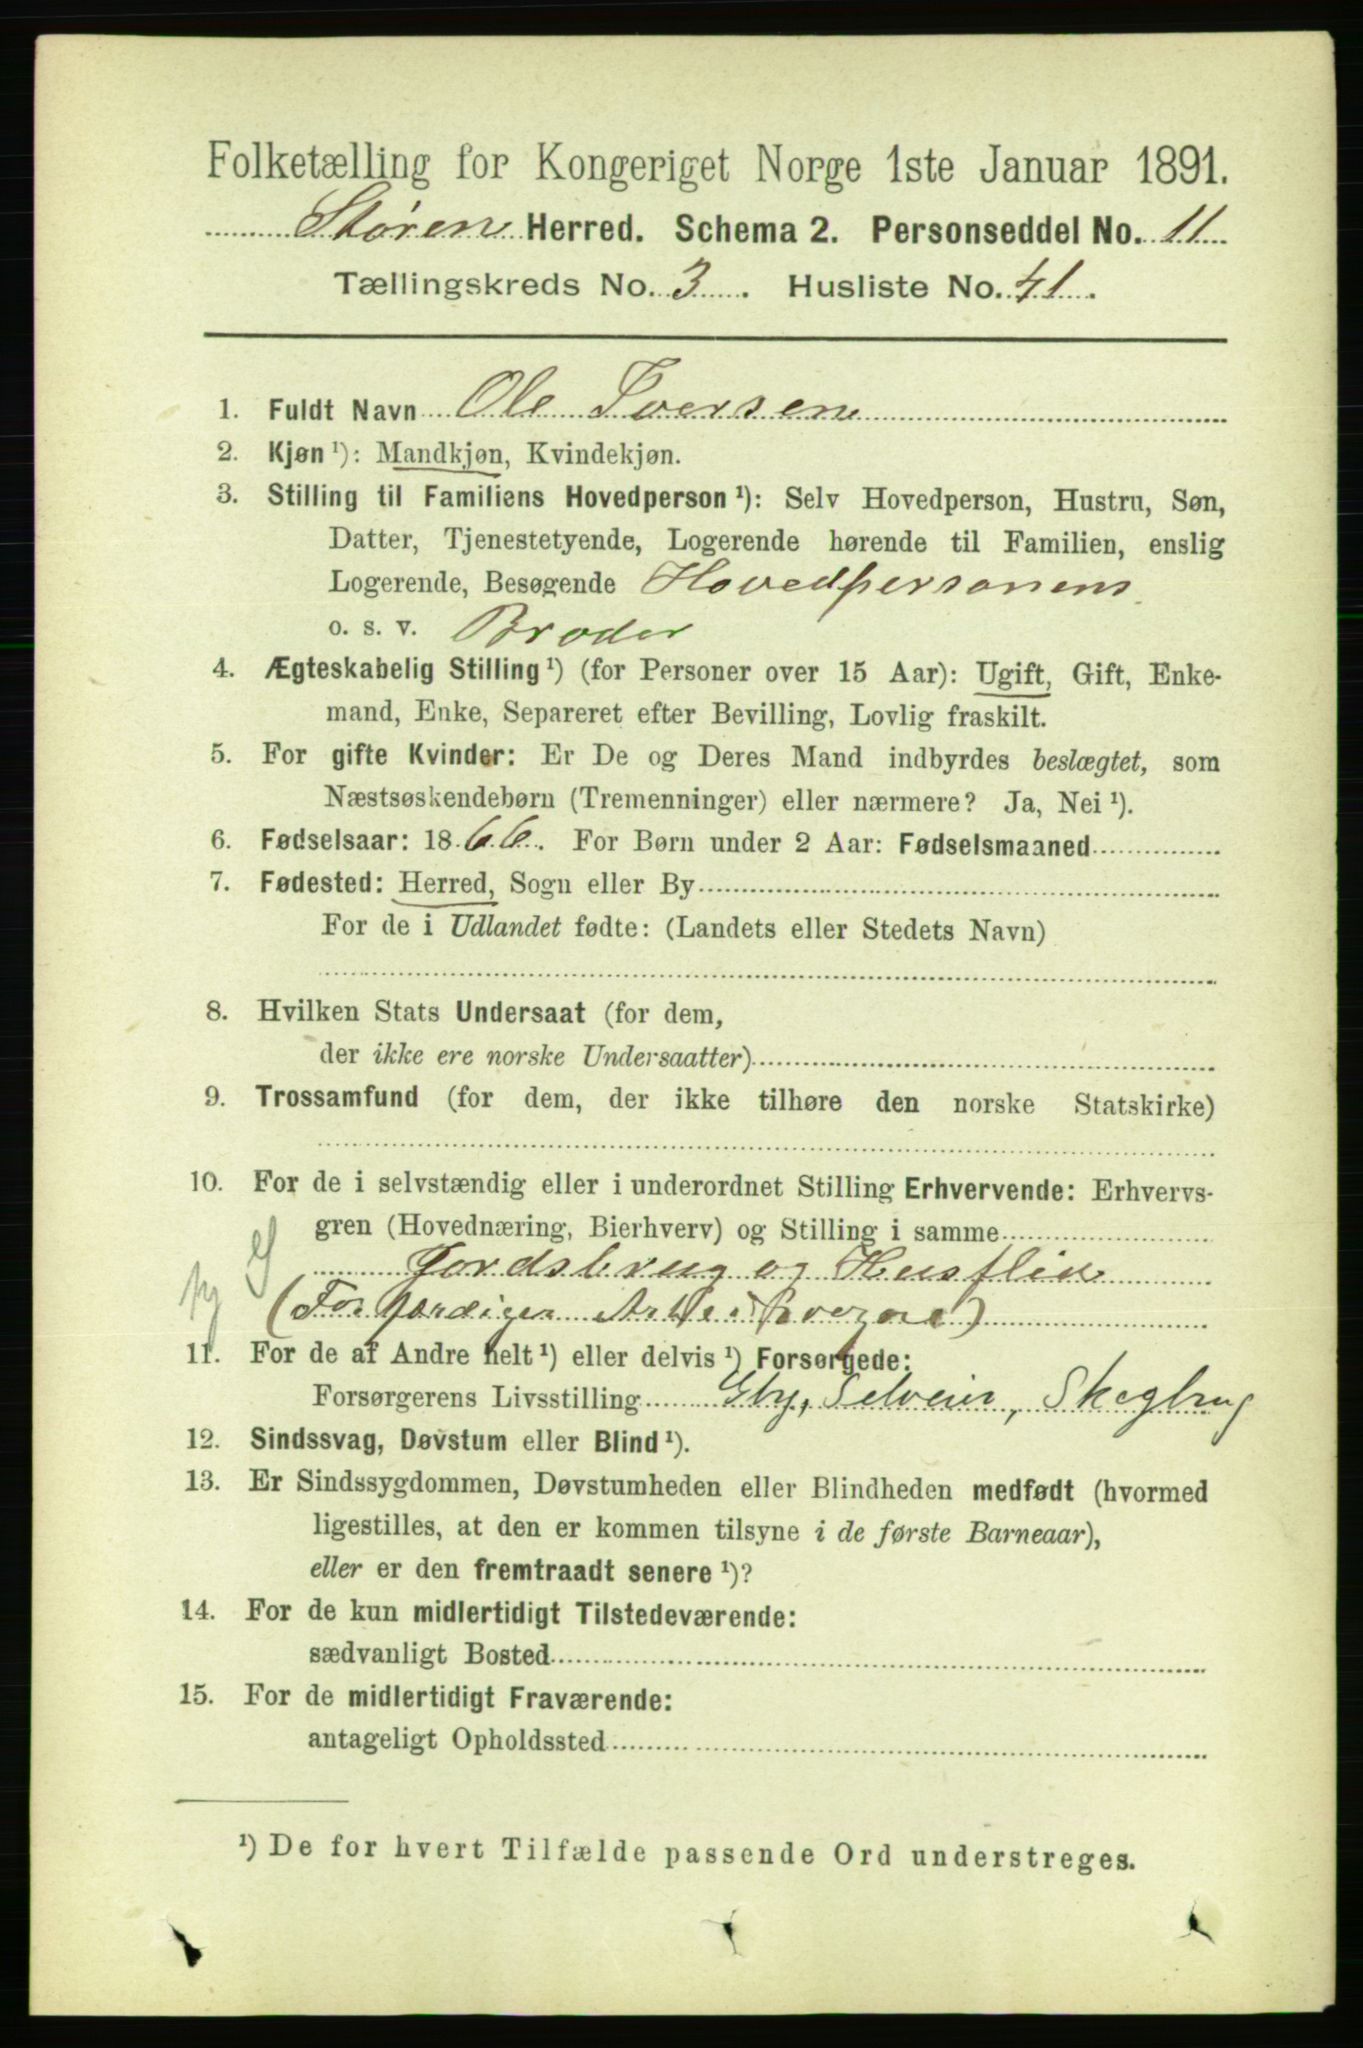 Folketælling for Kongeriget Norge 1ste Januar 1891.
Støren Herred. Schema 2. Personseddel No. 11
Tællingskreds No. 3. Husliste No. 41.
1. Fuldt Navn Ole Iversen
2. Kjøn ¹): Mandkjøn, Kvindekjøn.
3. Stilling til Familiens Hovedperson ¹): Selv Hovedperson, Hustru, Søn,
Datter, Tjenestetyende, Logerende hørende til Familien, enslig
Logerende, Besøgende Hovedpersonens
o. s. v. Broder
4. Ægteskabelig Stilling ¹) (for Personer over 15 Aar): Ugift, Gift, Enke-
mand, Enke, Separeret efter Bevilling, Lovlig fraskilt.
5. For gifte Kvinder: Er De og Deres Mand indbyrdes beslægtet, som
Næstsøskendebørn (Tremenninger) eller nærmere? Ja, Nei ¹).
6. Fødselsaar: 1866. For Børn under 2 Aar: Fødselsmaaned
7. Fødested: Herred, Sogn eller By
For de i Udlandet fødte: (Landets eller Stedets Navn)
8. Hvilken Stats Undersaat (for dem,
der ikke ere norske Undersaatter)
9. Trossamfund (for dem, der ikke tilhøre den norske Statskirke)
10. For de i selvstændig eller i underordnet Stilling Erhvervende: Erhvervs-
gren (Hovednæring, Bierhverv) og Stilling i samme
Jordsbrug og Husflid
(Forfærdiger
11. For de af Andre helt ¹) eller delvis ¹) Forsørgede:
Forsørgerens Livsstilling Gby, Selveier, Skogbrug
12. Sindssvag, Døvstum eller Blind ¹).
13. Er Sindssygdommen, Døvstumheden eller Blindheden medfødt (hvormed
ligestilles, at den er kommen tilsyne i de første Barneaar),
eller er den fremtraadt senere ¹)?
14. For de kun midlertidigt Tilstedeværende:
sædvanligt Bosted
15. For de midlertidigt Fraværende:
antageligt Opholdssted
¹) De for hvert Tilfælde passende Ord understreges.